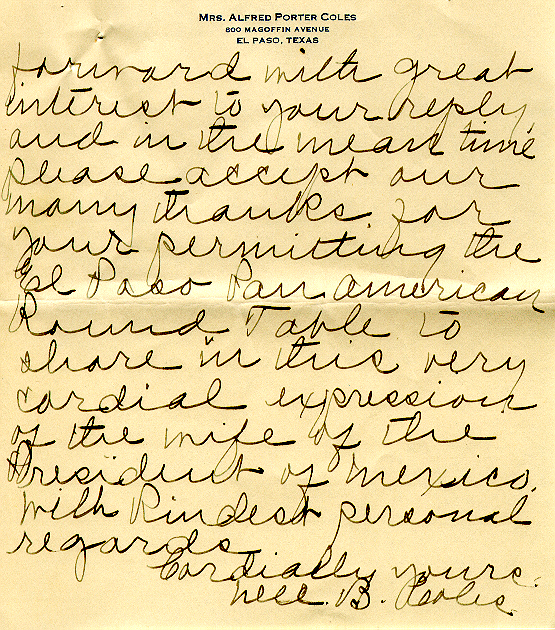 MRS. ALFRED PORTER COLES
800 MAGOFFIN AVENUE
EL PASO, TEXAS
forward with great
interest to your reply,
and in the mean time
please accept our
many thanks for
your permitting the
El Paso Pan American
Round Table to
share in this very
cordial expression
of the wife of the
President of Mexico.
With kindest personal
regards
Cordially yours.
Nell. B. Coles.